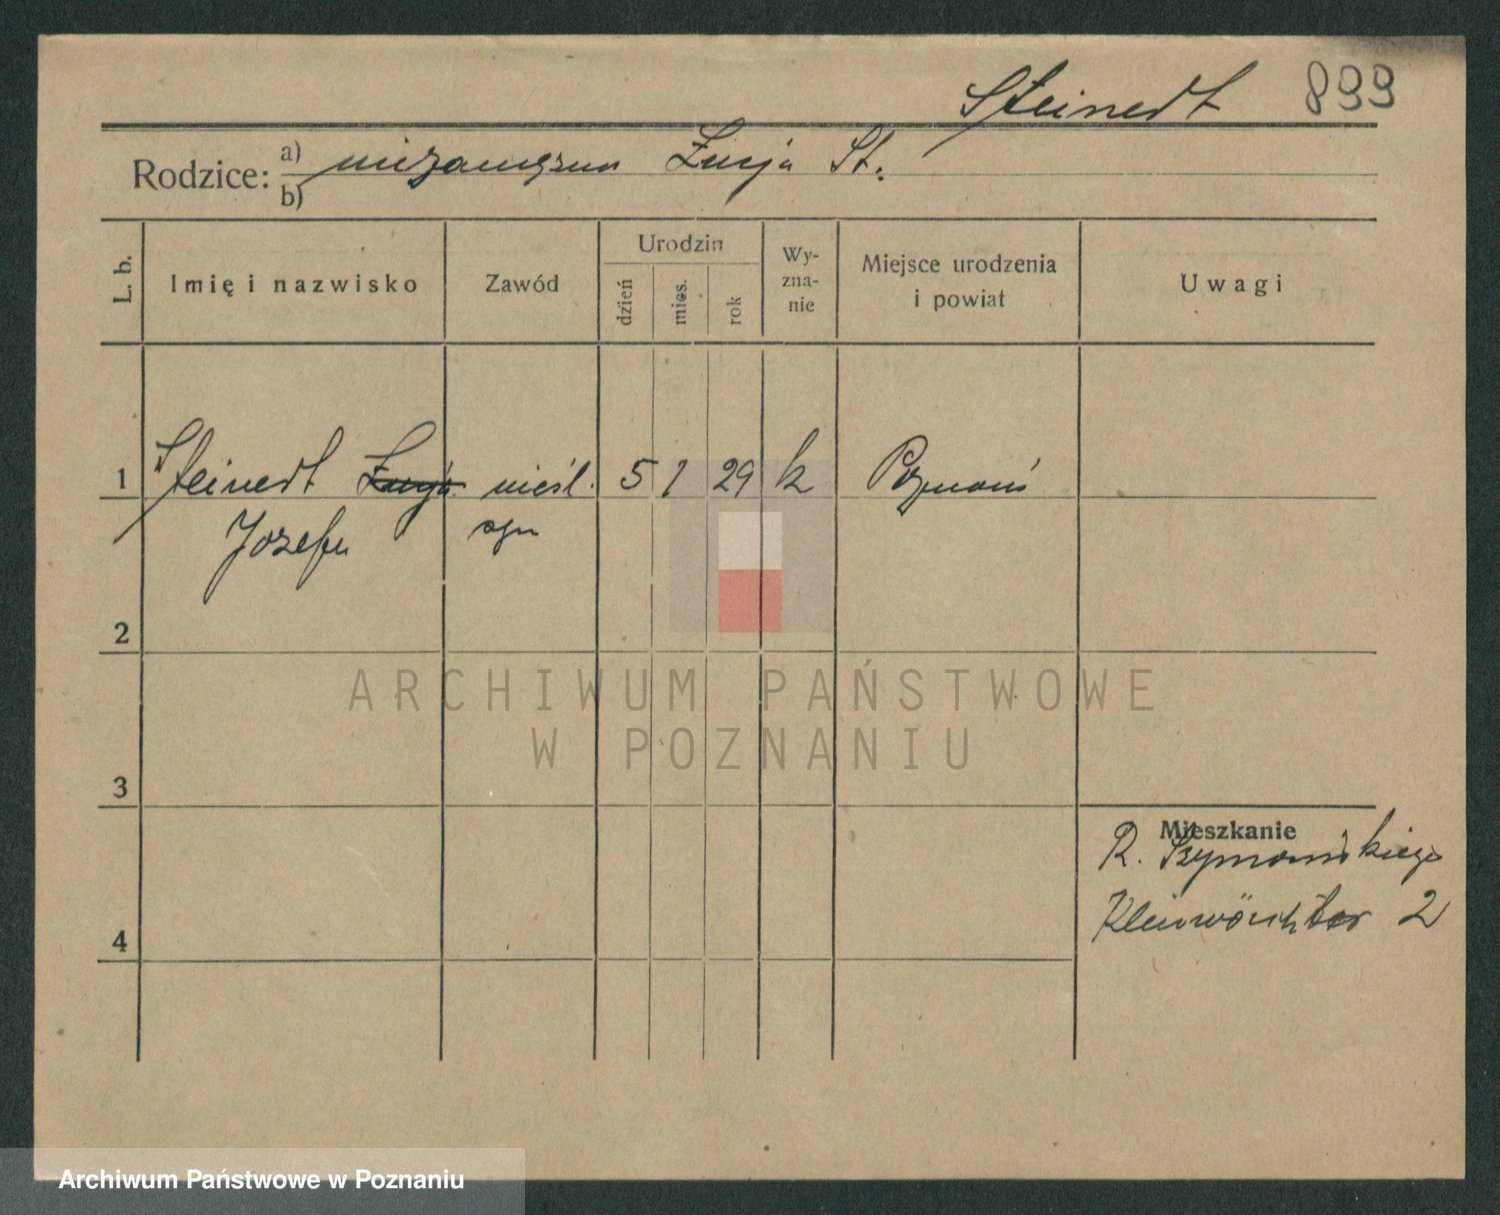 Steinert 899
Rodzice: a) niezamężna Łucja St.
b)
L. b.
Imię i nazwisko
Zawód
Urodzin
dzień
mies.
rok
Wy-
zna-
nie
Miejsce urodzenia
i powiat
Uwagi
1 Steinert Łucja nieśl. 5 1 29 k Poznań
Józefa
2
3
4
Mieszkanie
R. Szymańskiego
Kleinwächter 2
ARCHIWUM PAŃSTWOWE
W POZNANIU
Archiwum Państwowe w Poznaniu